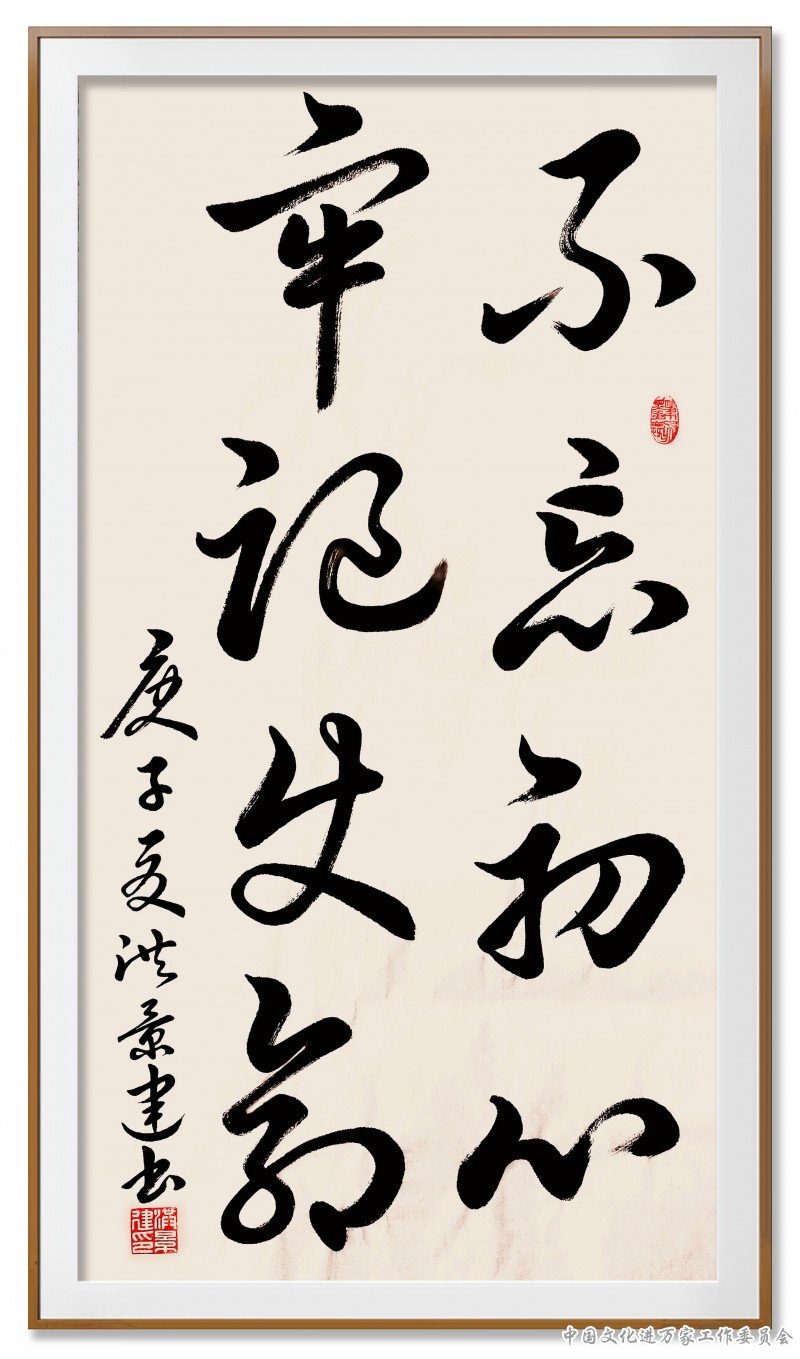 不忘初心
牢记使命
庚子夏洪景建书
洪景建印
中国文化进万家工作委员会